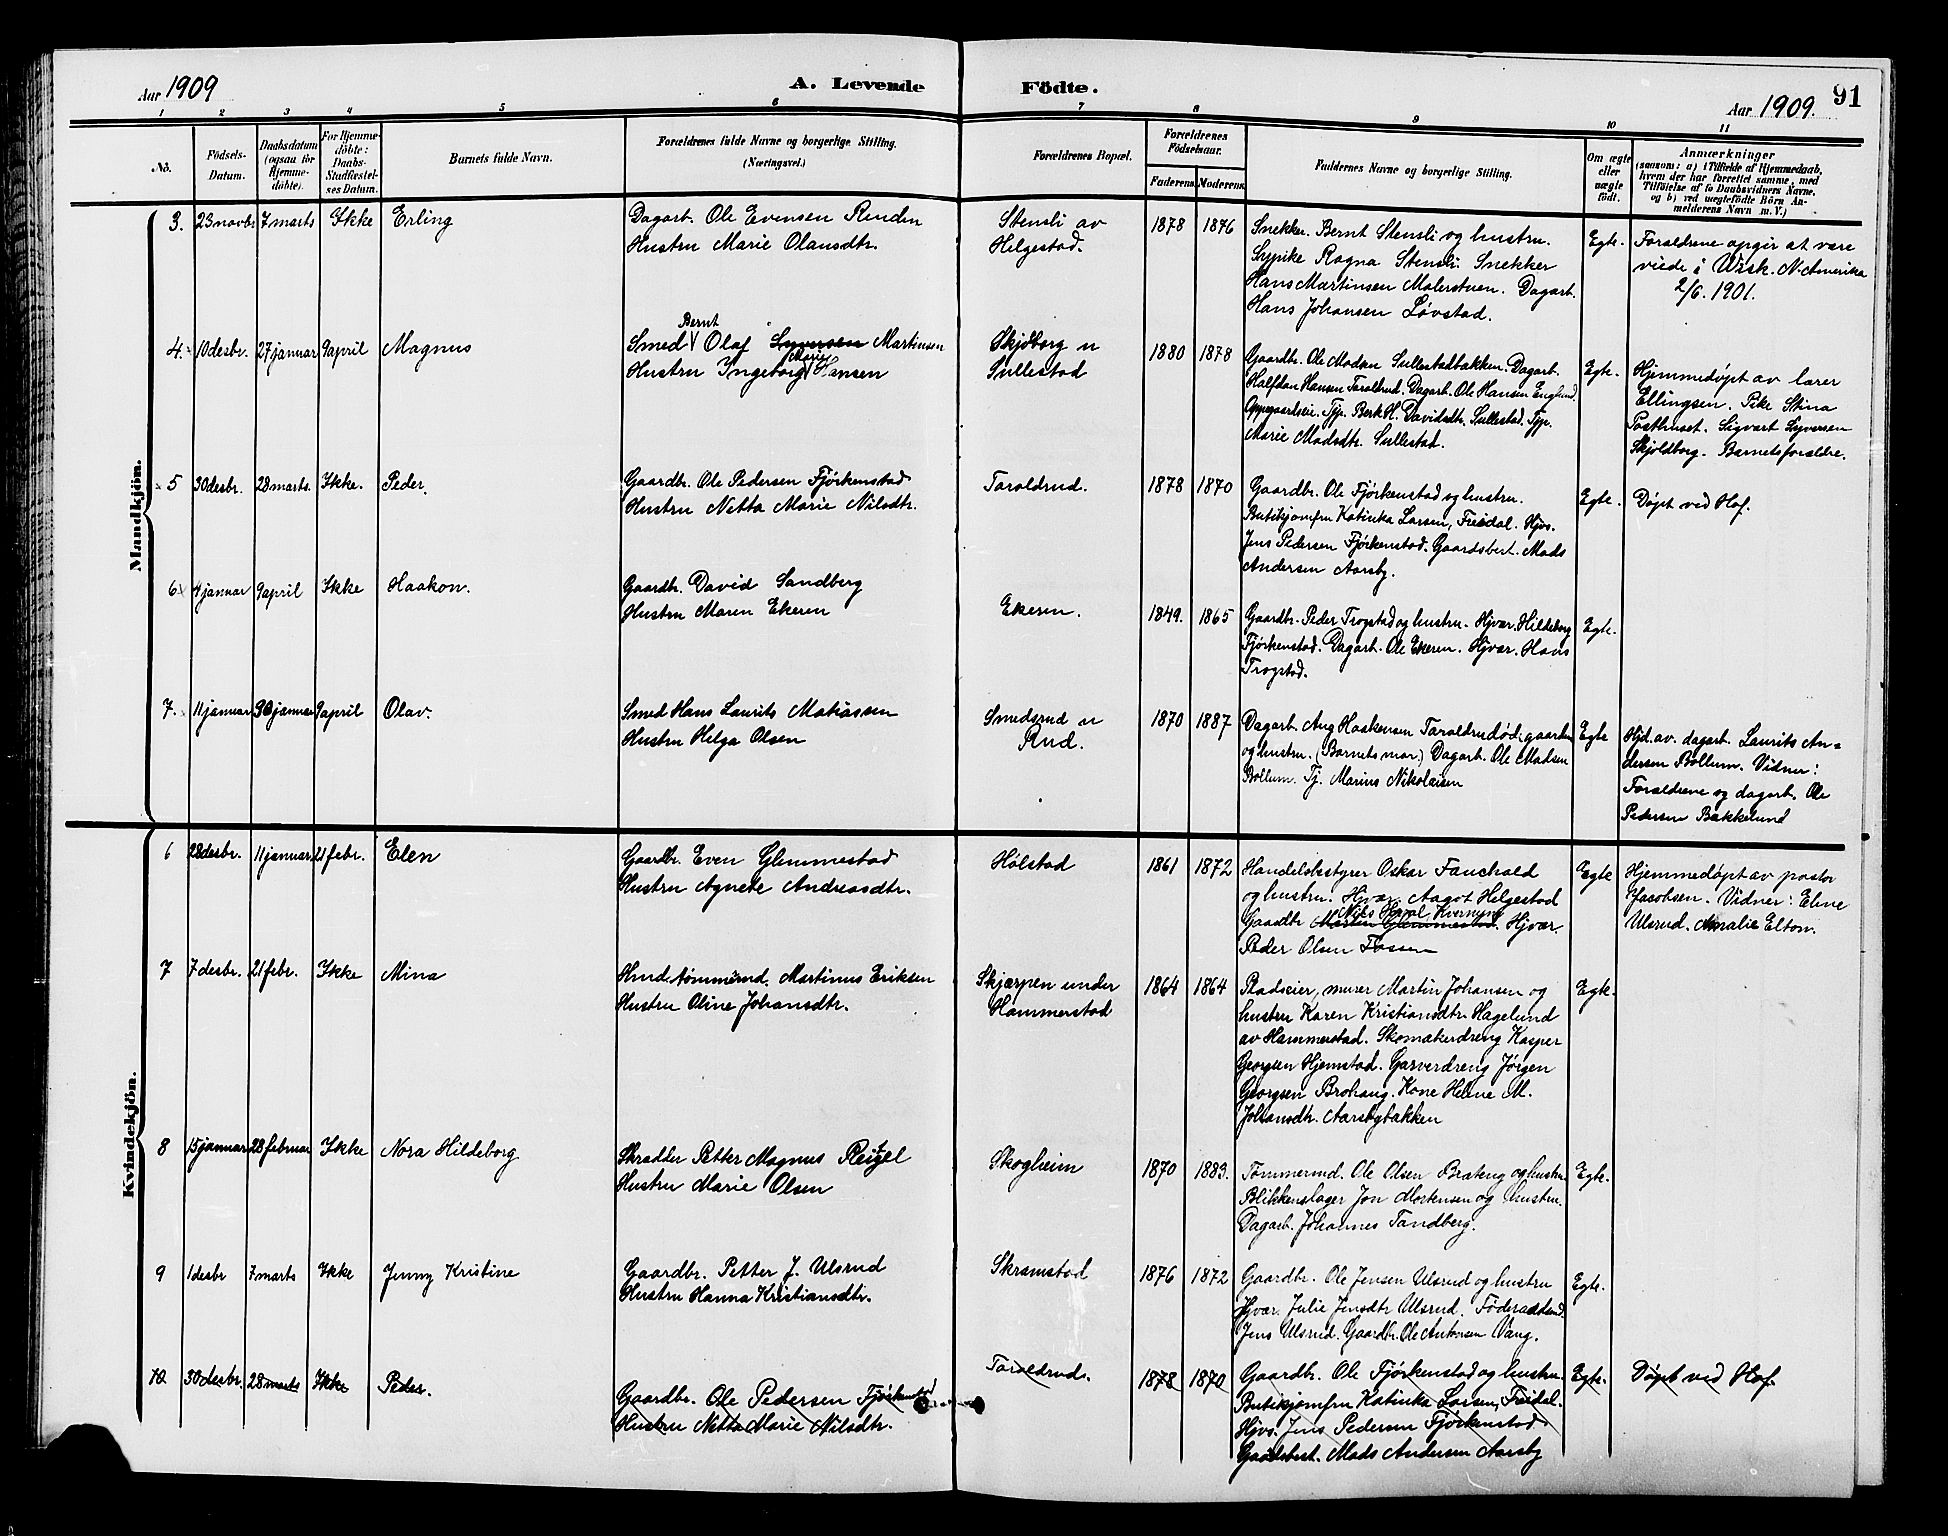 Aar 1909
A. Levende Födte.
Aar 1909.
91
1 2 3 4 5 6 7 8 9 10 11
No.
Födsels-
Datum.
Daabsdatum
(ogsaa for
Hjemme-
döbte).
For Hjemme-
döbte:
Daabs-
Stadfæstel-
ses Datum.
Barnets fulde Navn.
Forældrenes fulde Navne og borgerlige Stilling.
(Næringsvei.)
Forældrenes Bopæl.
Forældrenes
Födselsaar.
Faderens. Moderens.
Faddernes Navne og borgerlige Stilling.
Om ægte
eller
uægte
født.
Anmærkninger
(saasom: a) i Tilfælde af Hjemmedaab,
hvem der har forrettet samme, med
Tilföielse af to Daabsvidners Navne,
og b) ved uægtefödte Börn An-
melderens Navn m. V.)
Mandkjön.
3. 23 novbr 7 marts Ikke Erling
Dagarb. Ole Evensen Renden
Hustru Marie Olausdtr.
Stensli av
Helgestad.
1878 1876
Snekker. Bernt Stensli og hustru.
Sypike Ragna Stensli. Snekker
Hans Martinsen Malerstuen. Dagarb.
Hans Johansen Løvstad.
Egte.
Foraldrene opgir at vare
viede i Wisk. N. Amerika
2/6. 1901.
4. 10 desbr. 27 januar 9 april Magnus
Bernt
Smed Olaf Syversen Martinsen
Marie
Hustru Ingeborg Hansen
Skjoborg u
Sullestad
1880 1878
Gaardbr. Ole Madsen Sullestadbakken. Dagarb.
Halfdan Hansen Taraldrud. Dagarb. Ole Hansen Englund
Oppegaardseie. Tjp. Berth. Davidsdtr. Sullestad. Tjp.
Marie Madsdtr. Sullestad.
Egte.
Hjemmedøpt av larer
Ellingsen. Pike Stina
Posthuset. Sigvart Syversen
Skjoldborg. Barnets foraldre.
5 30 desbr. 28 marts. Ikke. Peder.
Gaardbr. Ole Pedersen Fjørkenstad
Hustru Netta Marie Nilsdtr.
Taraldrud.
1878 1870
Gaardbr. Ole Fjørkenstad og hustru.
Butikjomfru Katinka Larsen, Freidal. Hjvs.
Jens Pedersen Fjørkenstad. Gaardsbest. Mads
Andersen Aarsby.
Egte.
Døpt ved Hof.
6 4 januar 9 april Ikke Haakon.
Gaardb. David Sandberg
Hustru Maren Ekeren
Ekeren.
1849. 1865
Gaardbr. Peder Trogstad og hustru. Hjvar. Hildeborg
Fjørkenstad. Dagarb. Ole Ekeren. Hjvar. Hans
Trogstad.
Egte.
7. 11 januar 30 januar 9 april Olav.
Smed Hans Laurits Matiassen
Hustru Helga Olsen
Smedsrud u
Rud.
1870 1887
Dagarb. Aug Haakensen Taraldrudødegaarden
og hustru. (Barnets mor.) Dagarb. Ole Madsen
Bollum. Tj. Marius Nikolaisen
Egte
Hjd. av. dagarb. Laurits An-
dersen Bollum. Vidner:
Foraldrene og dagarb. Ole
Pedersen Bakkelund
Kvindekjön.
6 28 desbr. 11 januar 21 febr. Elen
Gaardbr. Even Glemmestad
Hustru Agnete Andreasdtr.
Hølstad
1861 1872
Handelsbestyrer Oskar Fauchald
og hustru. Hjvar. Aagot Helgestad
Nils Hoval Kvernum
Gaardbr Martin Glemmestad. Hjvar.
Peder Olsen Fossen
Egte
Hjemmedøpt av pastor
Jacobsen. Vidner: Eline
Ulsrud. Amalie Elton.
7 7 desbr. 21 febr. Ikke Mina
Hmd. tømmermd. Martinus Eriksen
Hustru Oline Johansdtr.
Skjærpen under
Hammerstad
1864 1864
Pladseier, murer Martin Johansen og
hustru Karen Kristiansdtr. Hagelund
av Hammerstad. Skomakerdreng Kasper
Georgsen Hjemstad. Garverdreng Jørgen
Georgsen Brohaug. Kone Helene M.
Johansdtr. Aarsbybakken
Egte.
8 15 januar 28 februar Ikke Nora Hildeborg
Skradder Petter Magnus Reizel
Hustru Marie Olsen
Skogheim
1870 1883.
Tømmermd. Ole Olsen Brateng og hustru
Blikkenslager Jon Mortensen og hustru.
Dagarb. Johannes Tandberg.
Egte.
9 1 desbr 7 marts Ikke Jenny Kristine
Gaardbr. Petter J. Ulsrud
Hustru Hanna Kristiansdtr.
Skramstad
1876 1872
Gaardbr. Ole Jensen Ulsrud og hustru
Hjvar. Julie Jensdtr Ulsrud. Føderaadsmd.
Jens Ulsrud. Gaardbr. Ole Antonsen Vang.
Egte.
10 30 desbr. 28 marts Ikke Peder.
Gaardbr. Ole Pedersen Fjørkenstad
Hustru Netta Marie Nilsdtr.
Taraldrud.
1878 1870
Gaardbr. Ole Fjørkenstad og hustru
Butikjomfru Katinka Larsen, Freidal.
Hjvs. Jens Pedersen Fjørkenstad
Gaardsbest. Mads Andersen Aarsby
Egte.
Døpt ved Hof.